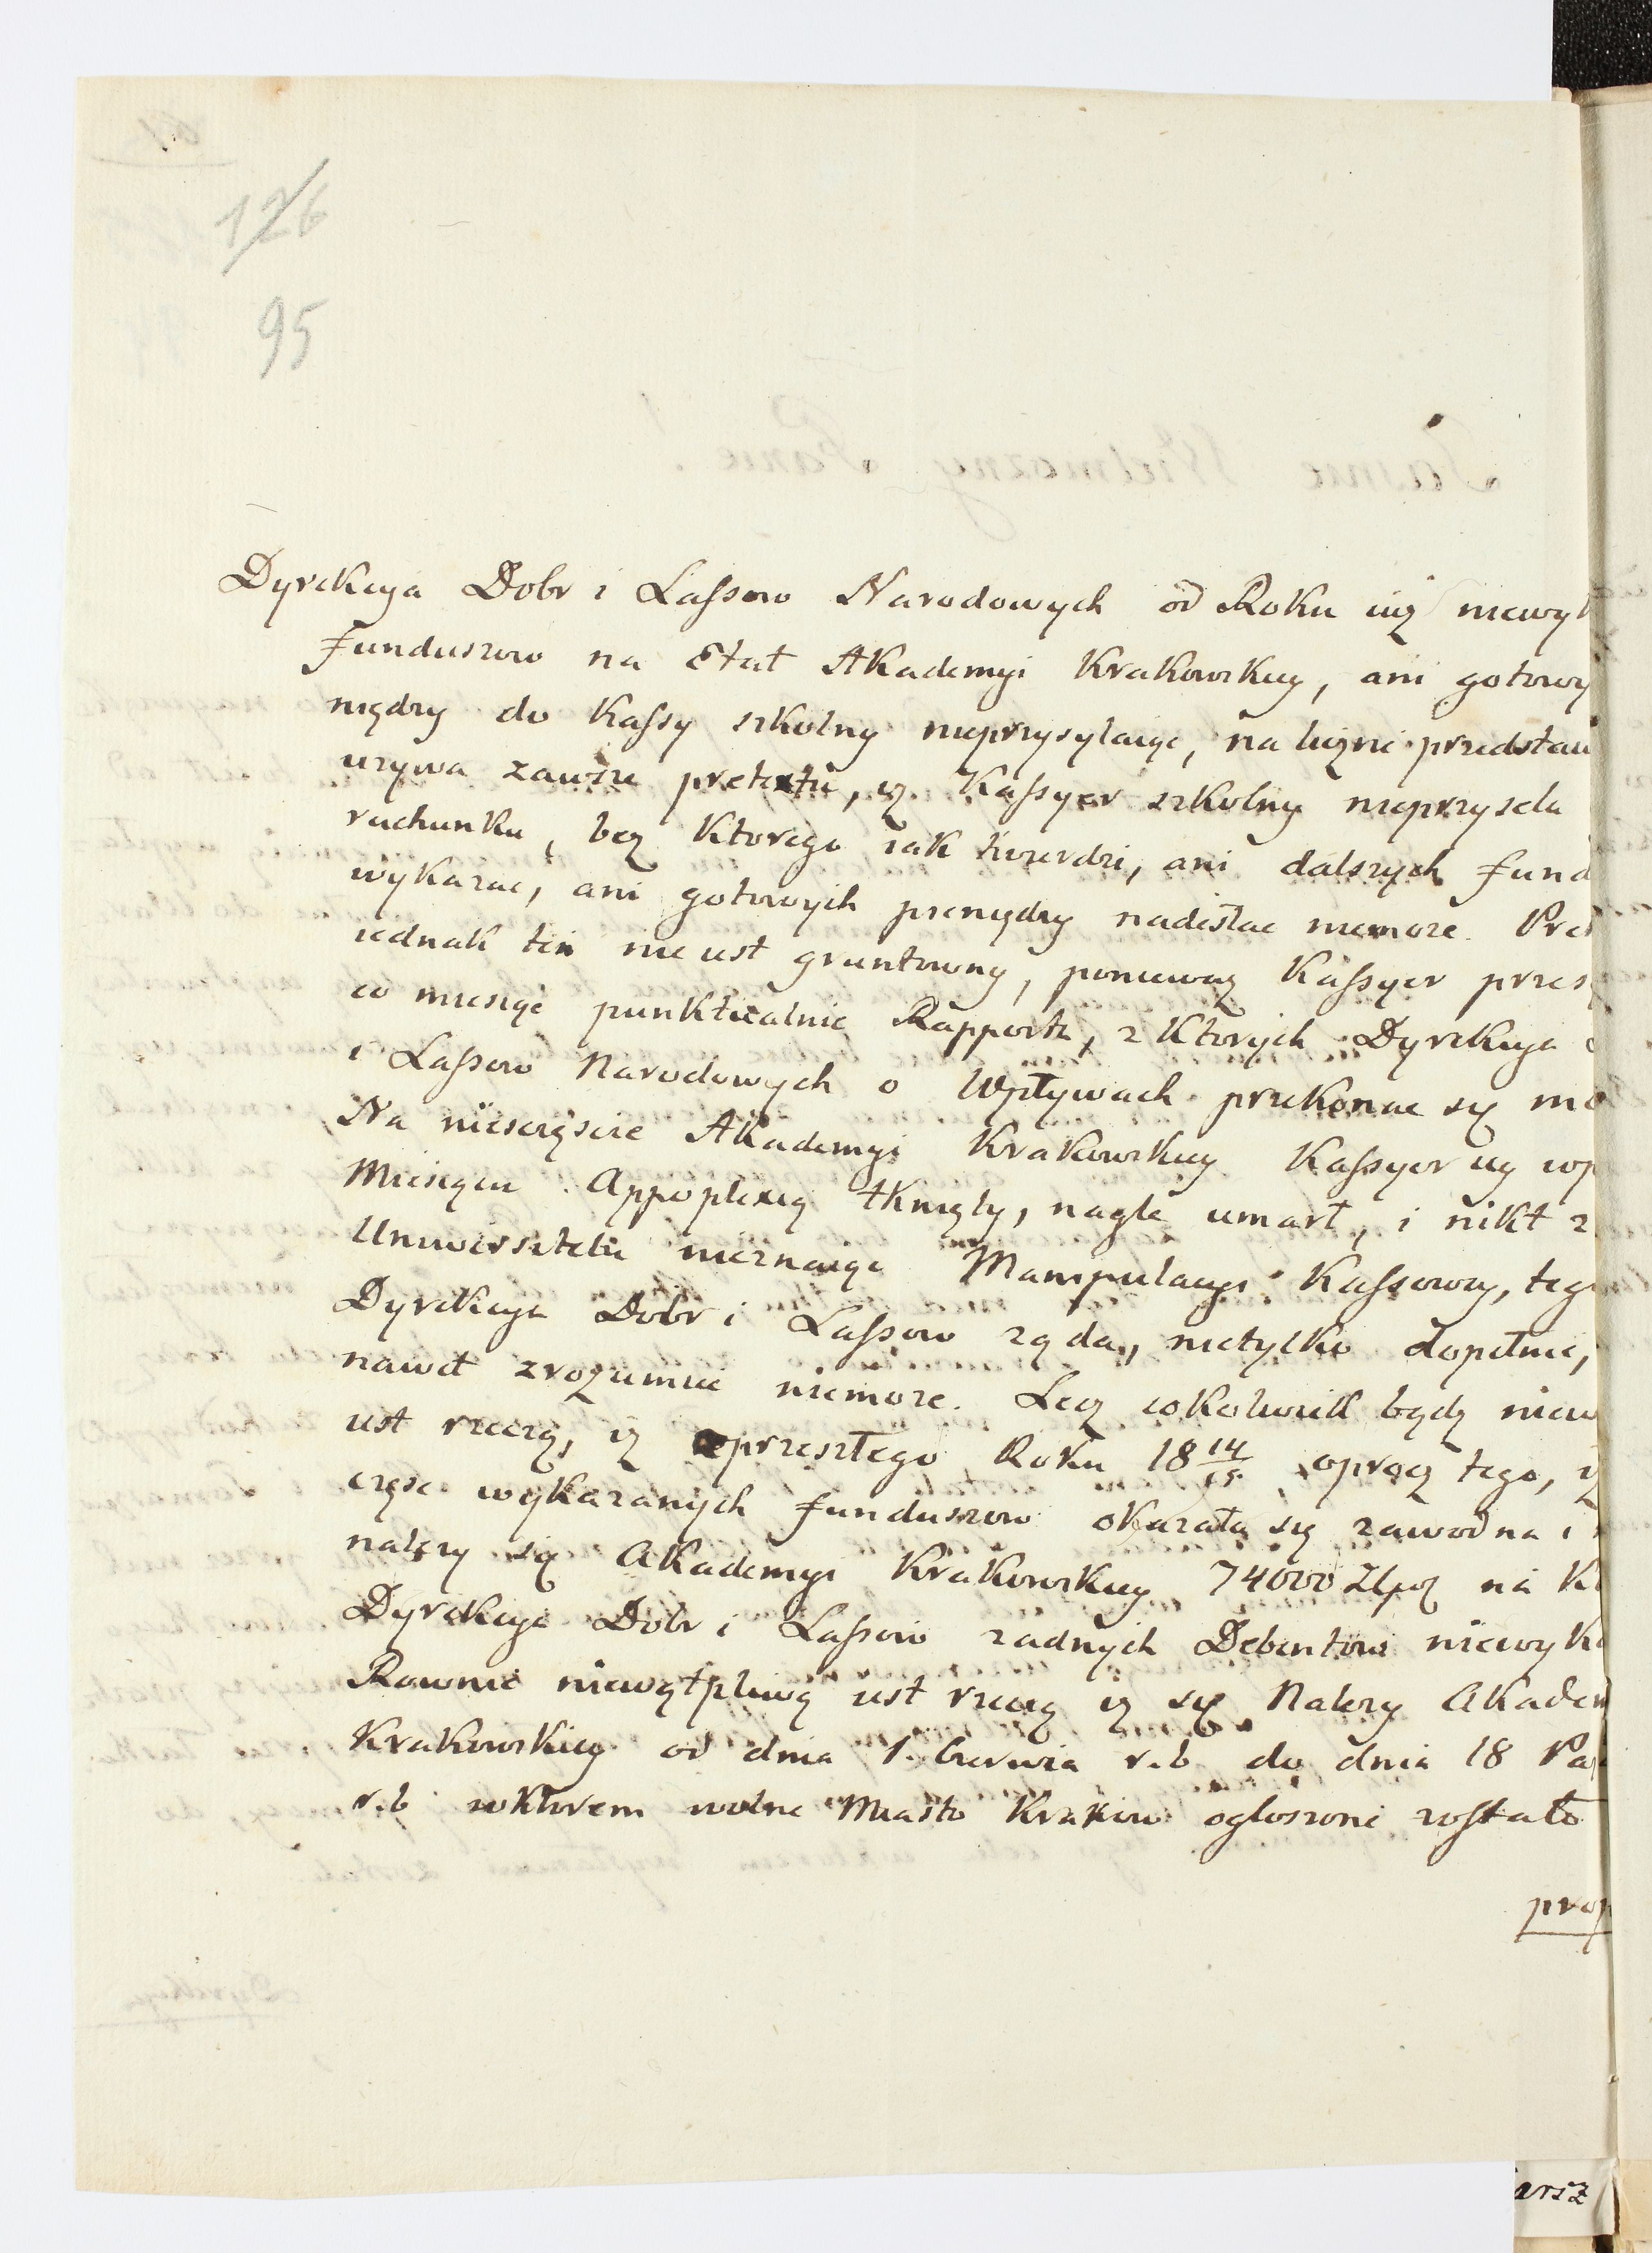 126
95
Dyrekcya Dobr i Lassow Narodowych od Roku iuż niewyk
Funduszow na Etat Akademyi Krakowskiey, ani gotowy
niędzy do Kassy szkolny nieprzysyłaiąc, na liczne przedstaw
używa zawsze pretextu, iż Kassyer szkolny nieprzyseła
rachunku, bez ktorego iak twierdzi, ani dalszych fund
wykazac, ani gotowych pieniędzy nadesłac niemoze. Pre
iednak ten nie iest gruntowny, poniewaz Kassyer przes
co miesiąc punktualnie Rapporta, z ktorych Dyrekcya
i Lassow Narodowych o Wpływach przekonac się mo
Na niesczęscie Akademyi Krakowskiey Kassyer iey wp
Miesiącu Appoplexią tknięty, nagle umarł, i nikt z
Uniwersitetu nieznaiąc Manipulacyi Kassowey, tego
Dyrekcya Dobr i Lassow ząda, nietylko dopełnic,
nawet zrozumiec niemoze. Lecz cokolwiek bądz niew
iest rzeczą, iż przeszłego Roku 18 14/15 oprocz tego, iż
częsc wykazanych funduszow okazała się zawodna i
nalezy się Akademyi Krakowskiey 74000 Złpol na K
Dyrekcya Dobr i Lassow zadnych Debentow niewyka
Rownie niewątpliwą iest rzeczą iż się Nalezy Akadem
Krakowskiey od dnia 1. Czerwca r.b do dnia 18 Pa
r.b wktorem wolne Miasto Krakow ogłoszone zostało
prop
arsz